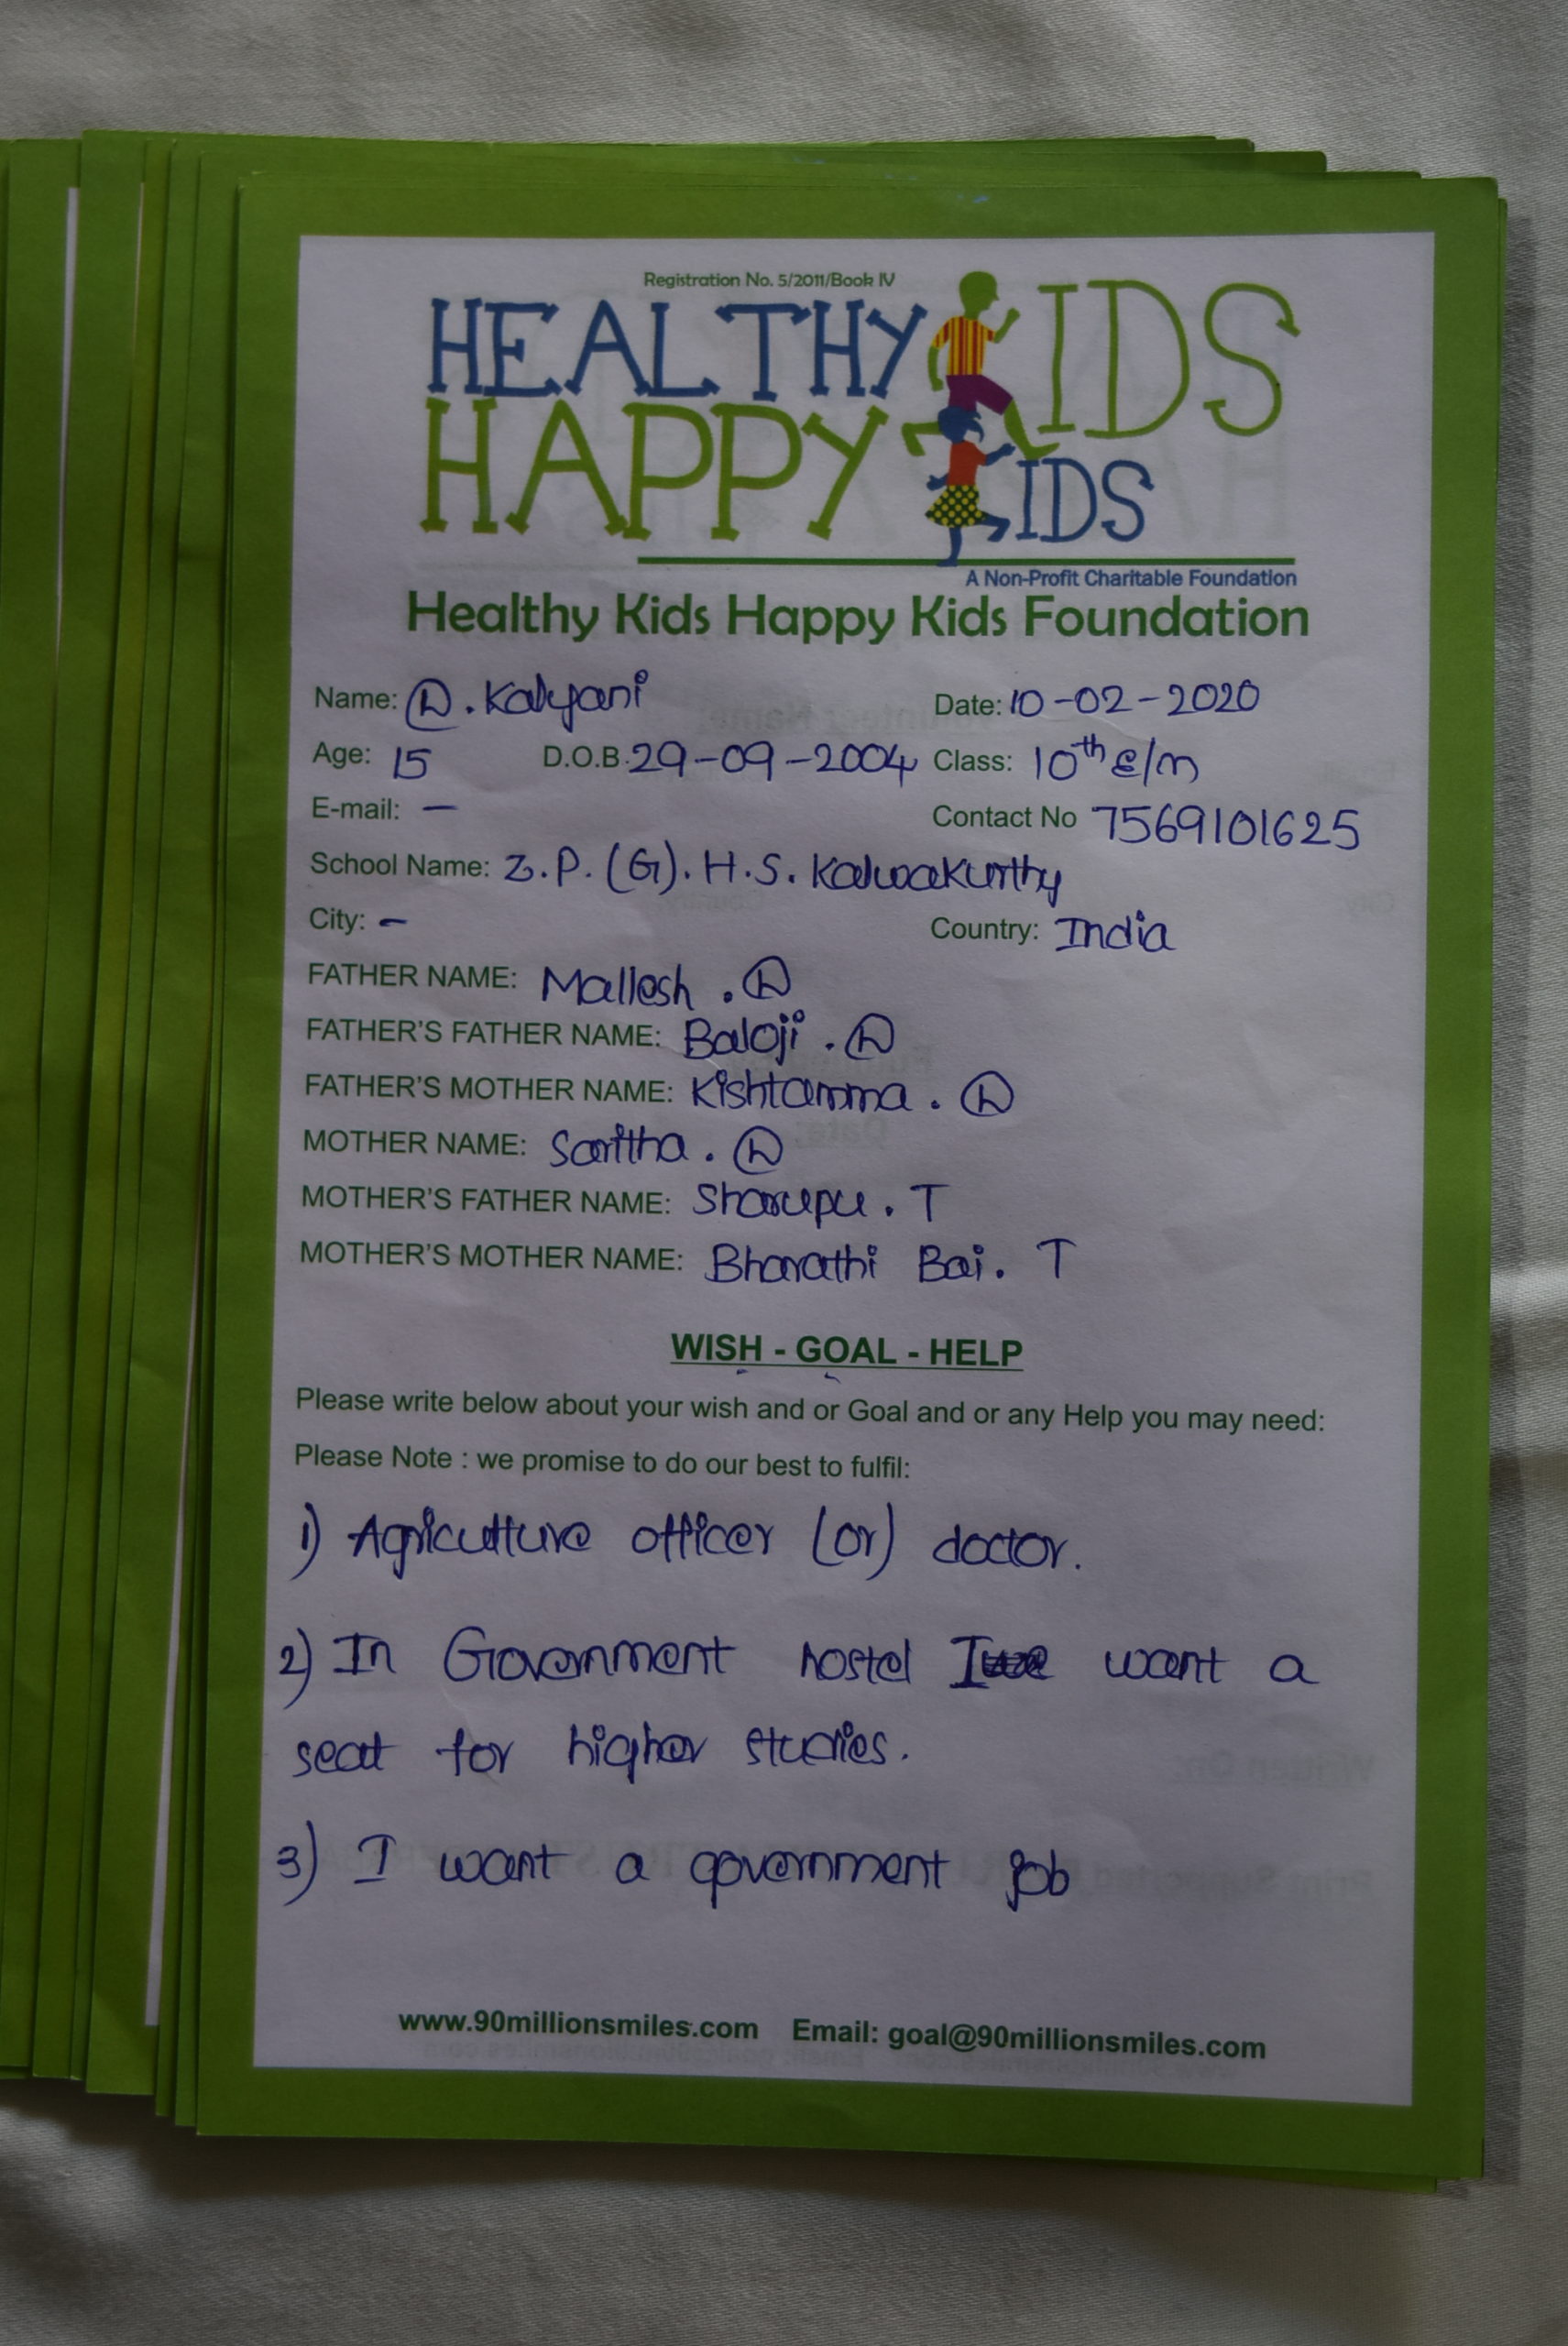 Registration No. 5/2011/Book IV
HEALTHY KIDS
HAPPY KIDS
A Non-Profit Charitable Foundation
Healthy Kids Happy Kids Foundation
Name: D. Kalyani Date: 10-02-2020
Age: 15 D.O.B. 29-09-2004 Class: 10th E/m
E-mail: — Contact No 7569101625
School Name: Z.P.(G).H.S. Kalwakurthy
City: - Country: India
FATHER NAME: Mallesh . D
FATHER'S FATHER NAME: Baloji . D
FATHER'S MOTHER NAME: Kishtamma . D
MOTHER NAME: Saritha . D
MOTHER'S FATHER NAME: . T
MOTHER'S MOTHER NAME: Bharathi Bai. T
WISH - GOAL - HELP
Please write below about your wish and or Goal and or any Help you may need:
Please Note : we promise to do our best to fulfil:
1) Agriculture officer (or) doctor.
2) In Government hostel I want a
seat for higher studies.
3) I want a government job
www.90millionsmiles.com Email: goal@90millionsmiles.com